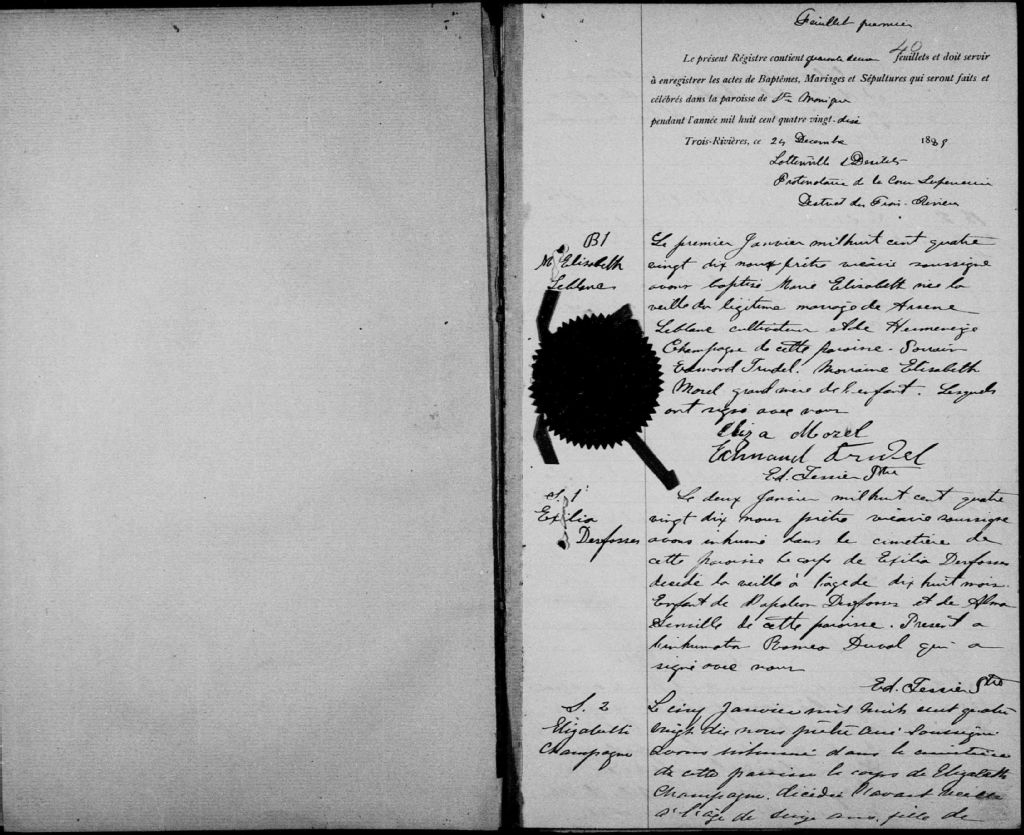 Feuillet premier
40
Le présent Régistre contient quarante deux feuillets et doit servir
à enregistrer les actes de Baptêmes, Mariages et Sépultures qui seront faits et
célébrés dans la paroisse de Ste Monique
pendant l'année mil huit cent quatre vingt-dix
Trois-Rivières, ce 24 Decembre 1889
Lottinville & Desilets
Protonotaire de la Cour Superieure
District des Trois-Rivières
B1
M. Elizabeth
Leblanc
Le premier Janvier mil huit cent quatre
vingt dix nous prêtre vicaire soussigné
avons baptisé Marie Elisabeth née la
veille du légitime mariage de Arsene
Leblanc cultivateur et de Hermenege
Champagne de cette paroisse. Parrain
Edmond Trudel. Marraine Elisabeth
Morel grand mère de l'enfant. Lesquels
ont signé avec nous
Eliza Morel
Edmond Trudel
Ed. Tessier Ptre
S. 1
Exilia
Desfosses
Le deux Janvier mil huit cent quatre
vingt dix nous prêtre vicaire soussigné
avons inhumé dans le cimetière de
cette paroisse le corps de Exilia Desfosses
decedé la veille à l'âge de dix huit mois.
Enfant de Napoleon Desfosses et de Alma
de cette paroisse. Present a
l'inhumation Romeo Duval qui a
signé avec nous
Ed. Tessier Ptre
S. 2
Elizabeth
Champagne
Le cinq Janvier mil huit cent quatre
vingt dix nous prêtre curé soussigné
avons inhumé dans le cimetière
de cette paroisse le corps de Elizabeth
Champagne, décédée l'avant veille
à l'âge de seize ans, fille de